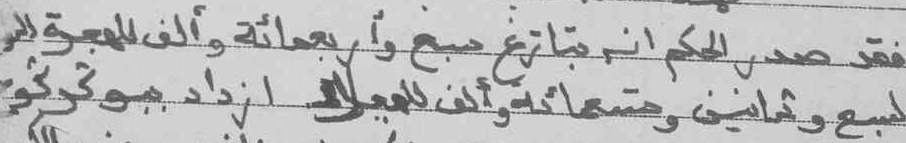 فقد صدر الحكم انه بتازغ سبع وأربعمائة وألف للهجرة
لسبع وثمانين وتسعمائة وألف للميلاد ازداد ببو